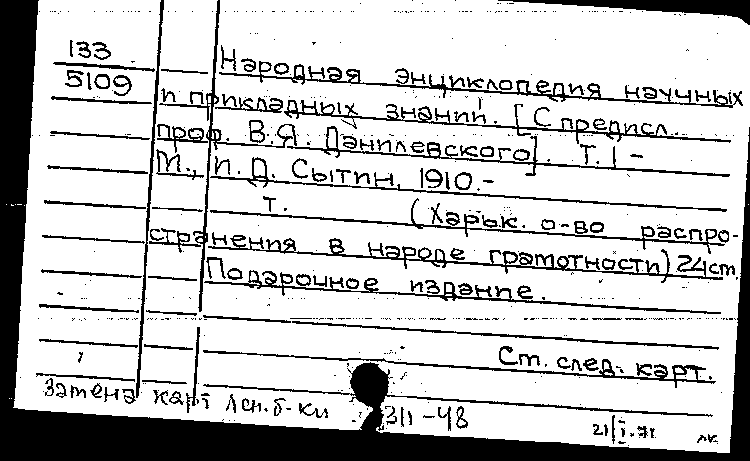 133
5109
Народная энциклопедия научных
и прикладных знаний. [С предисл.
проф. В.Я. Данилевского]. Т. 1 –
М., И. Д. Сытин, 1910.–
т. (Харьк. о-во распро-
странения в народе грамотности) 24см.
Подарочное издание.
Ст. след. карт.
Замена карт Лен. б-ки 311-48
21/I-71